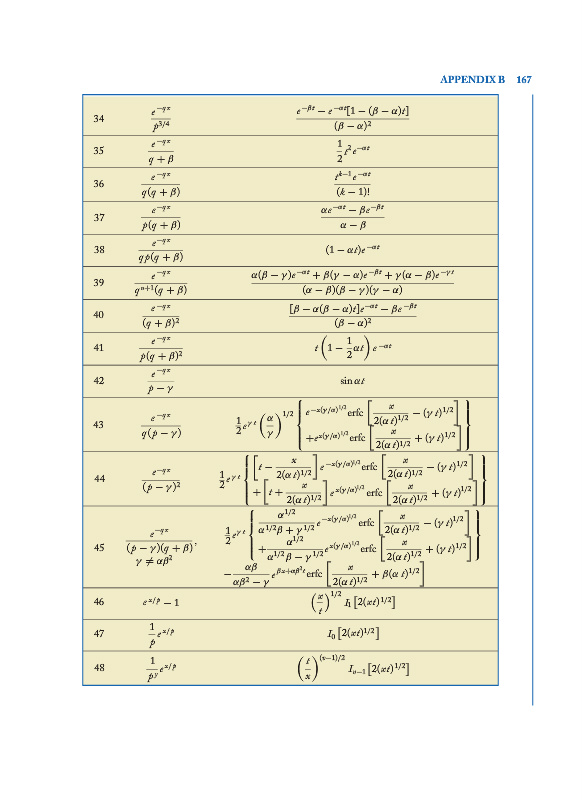 APPENDIX B 167
34 e^{-qx}/p^{3/4} (e^{-βt} − e^{-αt}[1 − (β − α)t])/(β − α)^2
35 e^{-qx}/(q + β) (1/2)t^2e^{-αt}
36 e^{-qx}/(q(q + β)) (t^{k−1}e^{-αt})/((k − 1)!)
37 e^{-qx}/(p(q + β)) (αe^{-αt} − βe^{-βt})/(α − β)
38 e^{-qx}/(qp(q + β)) (1 − αt)e^{-αt}
39 e^{-qx}/(q^{n+1}(q + β)) (α(β − γ)e^{-αt} + β(γ − α)e^{-βt} + γ(α − β)e^{-γt})/((α − β)(β − γ)(γ − α))
40 e^{-qx}/(q + β)^2 ([β − α(β − α)t]e^{-αt} − βe^{-βt})/(β − α)^2
41 e^{-qx}/(p(q + β)^2) t(1 − (1/2)αt)e^{-αt}
42 e^{-qx}/(p − γ) sin αt
43 e^{-qx}/(q(p − γ)) (1/2)e^{γt}(α/γ)^{1/2} {e^{-x(γ/α)^{1/2}}erfc[x/(2(αt)^{1/2}) − (γt)^{1/2}]
+e^{x(γ/α)^{1/2}}erfc[x/(2(αt)^{1/2}) + (γt)^{1/2}]}
44 e^{-qx}/(p − γ)^2 (1/2)e^{γt} {[t − x/(2(αt)^{1/2})]e^{-x(γ/α)^{1/2}}erfc[x/(2(αt)^{1/2}) − (γt)^{1/2}]
+[t + x/(2(αt)^{1/2})]e^{x(γ/α)^{1/2}}erfc[x/(2(αt)^{1/2}) + (γt)^{1/2}]}
45 e^{-qx}/((p − γ)(q + β)), γ ≠ αβ^2 (1/2)e^{γt} {α^{1/2}/(α^{1/2}β + γ^{1/2})e^{-x(γ/α)^{1/2}}erfc[x/(2(αt)^{1/2}) − (γt)^{1/2}]
+α^{1/2}/(α^{1/2}β − γ^{1/2})e^{x(γ/α)^{1/2}}erfc[x/(2(αt)^{1/2}) + (γt)^{1/2}]}
−αβ/(αβ^2 − γ)e^{βx+αβ^2t}erfc[x/(2(αt)^{1/2}) + β(αt)^{1/2}]
46 e^{x/p} − 1 (x/t)^{1/2} I_1[2(xt)^{1/2}]
47 (1/p)e^{x/p} I_0[2(xt)^{1/2}]
48 (1/p^γ)e^{x/p} (t/x)^{(v−1)/2} I_{v−1}[2(xt)^{1/2}]